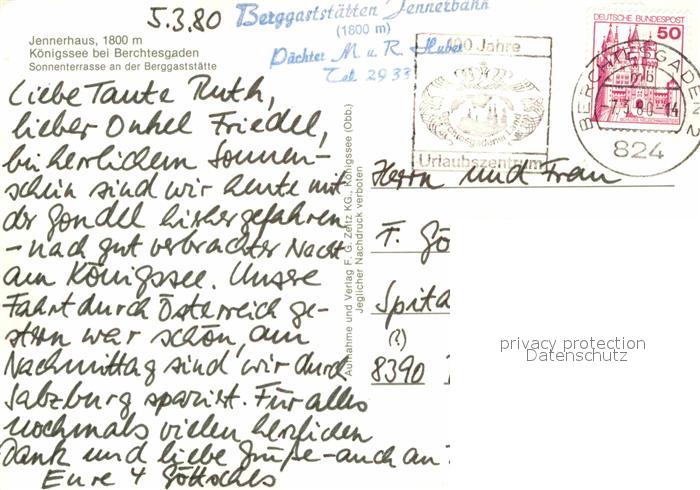 5.3.80
Berggaststätten Jennerbahn
(1800 m)
Pächter M. u. R. Huber
Tel. 2933
Jennerhaus, 1800 m
Königssee bei Berchtesgaden
Sonnenterrasse an der Berggaststätte
Liebe Tante Ruth,
lieber Onkel Friedel,
bei herrlichem Sonnen-
schein sind wir heute mit
der Gondel hierhergefahren
- nach gut verbrachter Nacht
am Königssee. Unsre
Fahrt durch Österreich ge-
stern war schön, am
Nachmittag sind wir durch
Salzburg spaziert. Für alles
nochmals vielen herzlichen
Dank und liebe Grüße - auch an
Eure 4 Göttschls
Aufnahme und Verlag F. G. Zeitz KG., Königssee (Obb.)
Jeglicher Nachdruck verboten
Jahre
Urlaubszentrum
DEUTSCHE BUNDESPOST
50
BERCHTESGADEN
mb
-7.3.80-14
824
Herrn und Frau
F. Gö
Spita
(?)
8390
privacy protection
Datenschutz